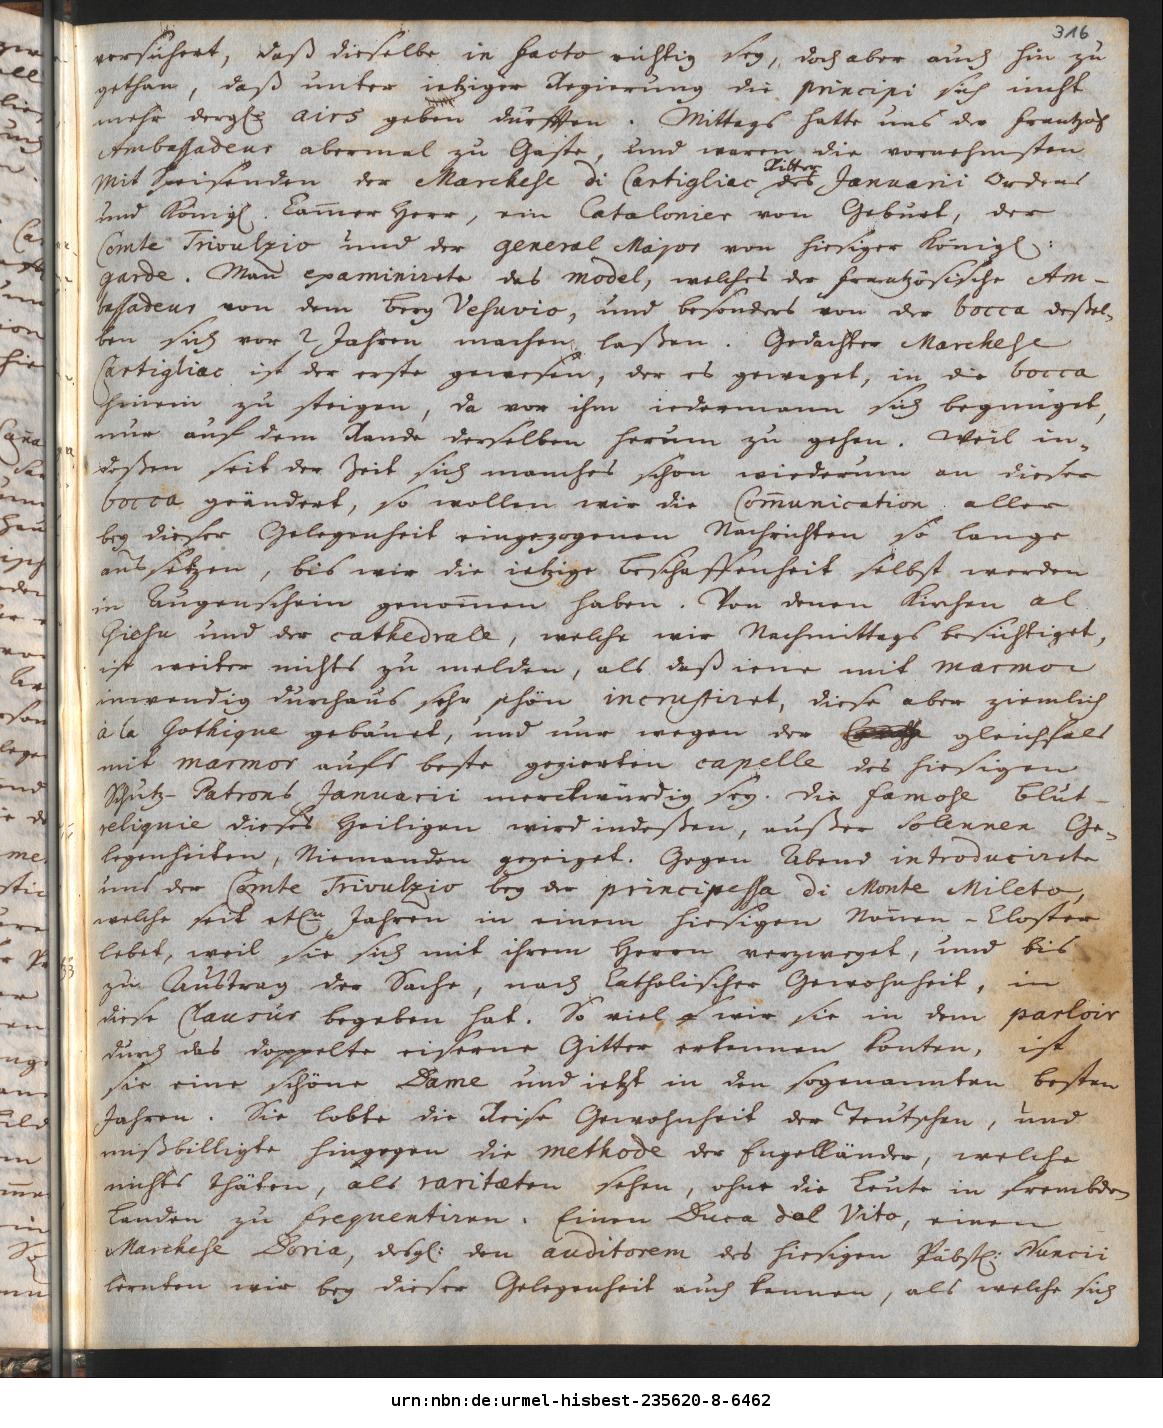 316
versichert, daß dieselbe in facto richtig sey, doch aber auch hin zu
gethan, daß unter ietziger Regierung die principi sich nicht
mehr dergl. airs geben dürfften. Mittags hatte uns der frantzös.
Ambassadeur abermal zu Gaste, und waren die vornehmsten
Mit Speisenden der Marchese di Cartigliac Ritter des Januarii Ordens
und Königl. Cam̄er Herr, ein Catalonier von Geburt, der
Comte Trivulzio und der general Major von hiesiger Königl:
garde. Man examinirete das model, welches der frantzösische Am-
bassadeur von dem berg Vesuvio, und besonders von der bocca deßel-
ben sich vor 2 Jahren machen laßen. Gedachter Marchese
Cartigliac ist der erste gewesen, der es gewaget, in die bocca
hinein zu steigen, da vor ihm iedermann sich begnüget,
nur auf dem Rande derselben herum zu gehen. Weil in-
deßen seit der Zeit sich manches schon wiederum an dieser
bocca geändert, so wollen wir die Com̄unication aller
bey dieser Gelegenheit eingezogenen Nachrichten so lange
aussetzen, bis wir die ietzige Beschaffenheit selbst werden
in Augenschein genom̄en haben. Von denen Kirchen al
Giesu und der cathedrale, welche wir Nachmittags besichtiget,
ist weiter nichts zu melden, als daß iene mit marmor
inwendig durchaus sehr schön incrustiret, diese aber ziemlich
à la Gothique gebauet, und nur wegen der gleichfals
mit marmor aufs beste gezierten capelle des hiesigen
Schutz-Patrons Januarii merckwürdig sey. Die famose Blut-
reliquie dieses Heiligen wird indeßen, außer solennen Ge-
legenheiten, Niemanden gezeiget. Gegen Abend introducirete
uns der Comte Trivulzio bey der principessa di Monte Mileto,
welche seit etln Jahren in einem hiesigen Non̄en-Closter
lebet, weil sie sich mit ihrem Herrn verzweyet, und bis
zu Austrag der Sache, nach Catholischer Gewohnheit, in
diese Clausur begeben hat. So viel wir sie in dem parloir
durch das doppelte eiserne Gitter erkennen konten, ist
sie eine schöne Dame und ietzt in den sogenannten besten
Jahren. Sie lobte die Reise Gewohnheit der Teutschen, und
mißbilligte hingegen die methode der Engelländer, welche
nichts thäten, als raritæten sehen, ohne die Leute in frembden
Landen zu frequentiren. Einen Duca del Vito, einen
Marchese Doria, desgl: den auditorem des hiesigen Päbstl: Nuncii
lernten wir bey dieser Gelegenheit auch kennen, als welche sich
urn:nbn:de:urmel-hisbest-235620-8-6462